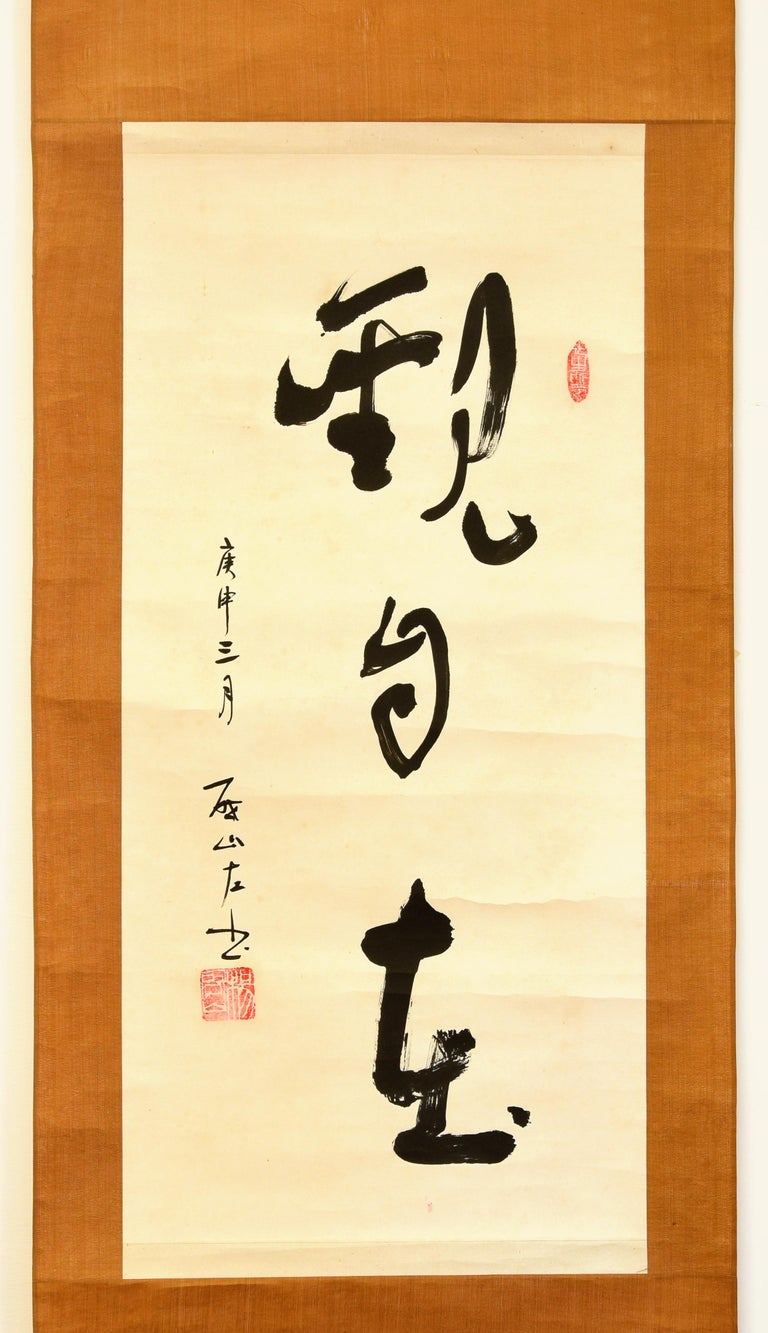 觀自在
庚申三月
山左書